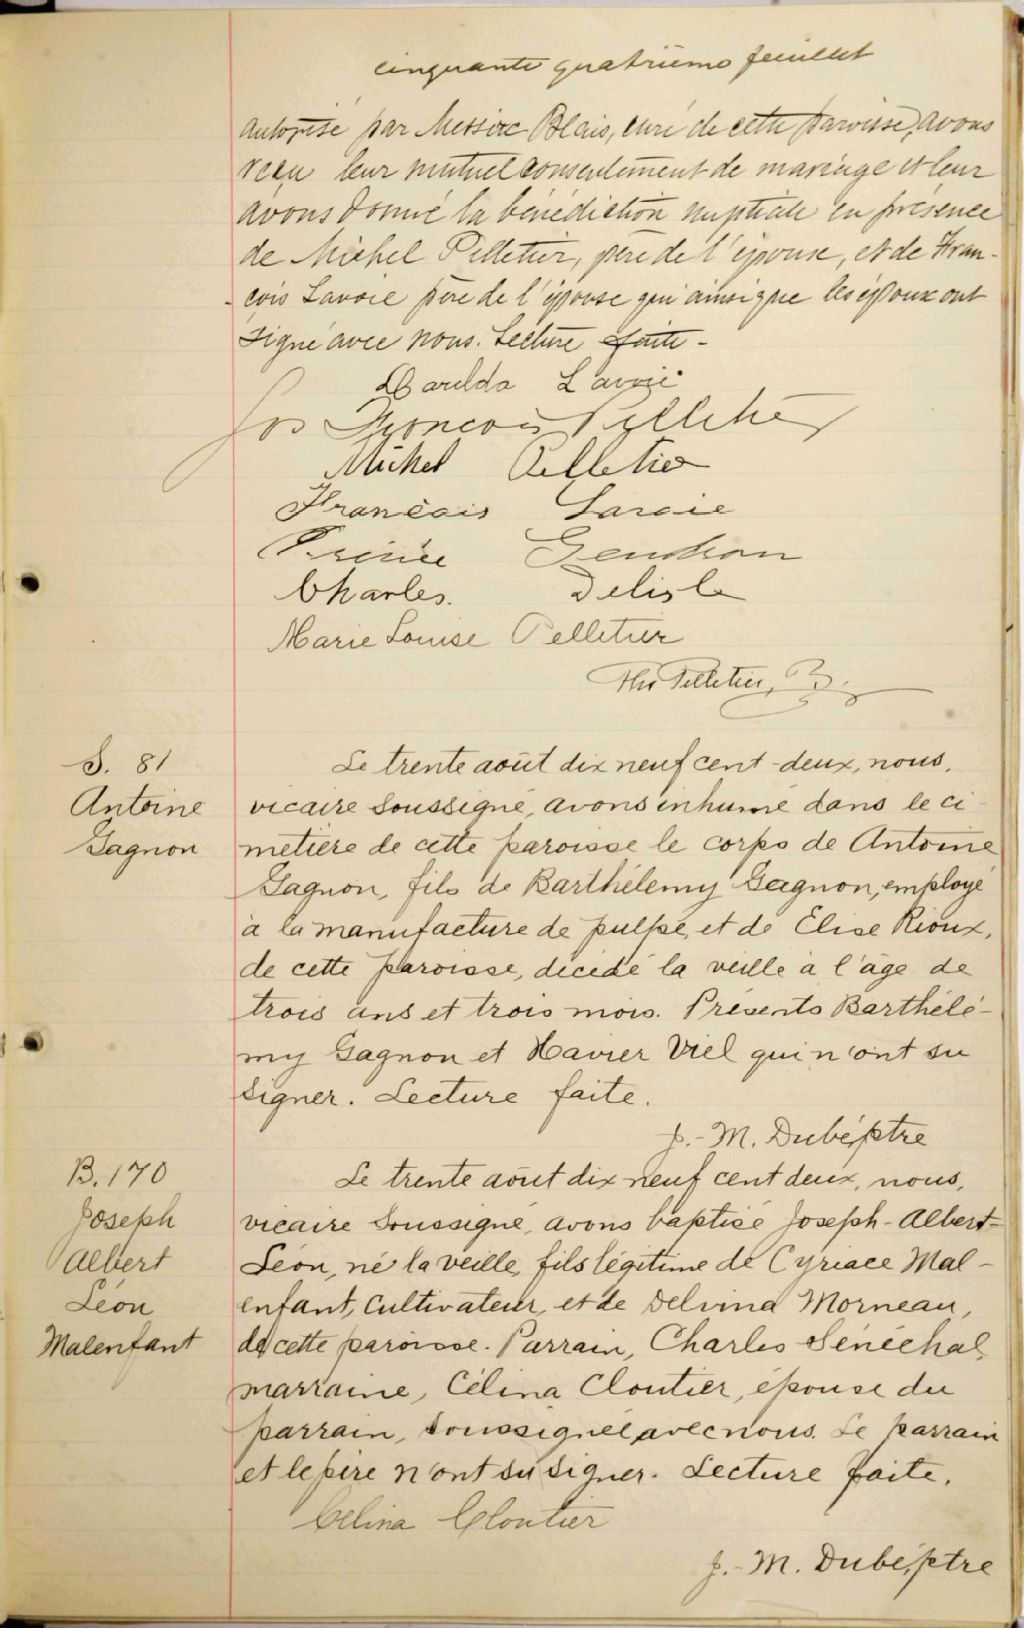 cinquante quatrième feuillet
autorisé par Messire Blais, curé de cette paroisse, avons
reçu leur mutuel consentement de mariage et leur
avons donné la bénédiction nuptiale en présence
de Michel Pelletier, père de l'épouse, et de Fran-
-çois Lavoie père de l'épouse qui ainsi que les époux ont
signé avec nous. Lecture faite -
Lavoie
Jos François Pelletier
Michel Pelletier
François Lavoie
Gendron
Charles. Delisle
Marie Louise Pelletier
Ths Pelletier, Ptr.
S. 81
Antoine
Gagnon
Le trente août dix neuf cent-deux, nous,
vicaire soussigné, avons inhumé dans le ci-
metière de cette paroisse le corps de Antoine
Gagnon, fils de Barthélemy Gagnon, employé
à la manufacture de pulpe, et de Elise Rioux,
de cette paroisse, décédé la veille à l'âge de
trois ans et trois mois. Présents Barthélé-
my Gagnon et Xavier Viel qui n'ont su
signer. Lecture faite.
J.-M. Dubé, ptre
B. 170
Joseph
Albert
Léon
Malenfant
Le trente août dix neuf cent deux, nous,
vicaire soussigné, avons baptisé Joseph-Albert-
Léon, né la veille, fils légitime de Cyriace Mal-
enfant, cultivateur, et de Delvina Morneau,
de cette paroisse. Parrain, Charles Sénéchal,
marraine, Célina Cloutier, épouse du
parrain, soussignée avec nous. Le parrain
et le père n'ont su signer. Lecture faite.
Celina Cloutier
J.-M. Dubé, ptre